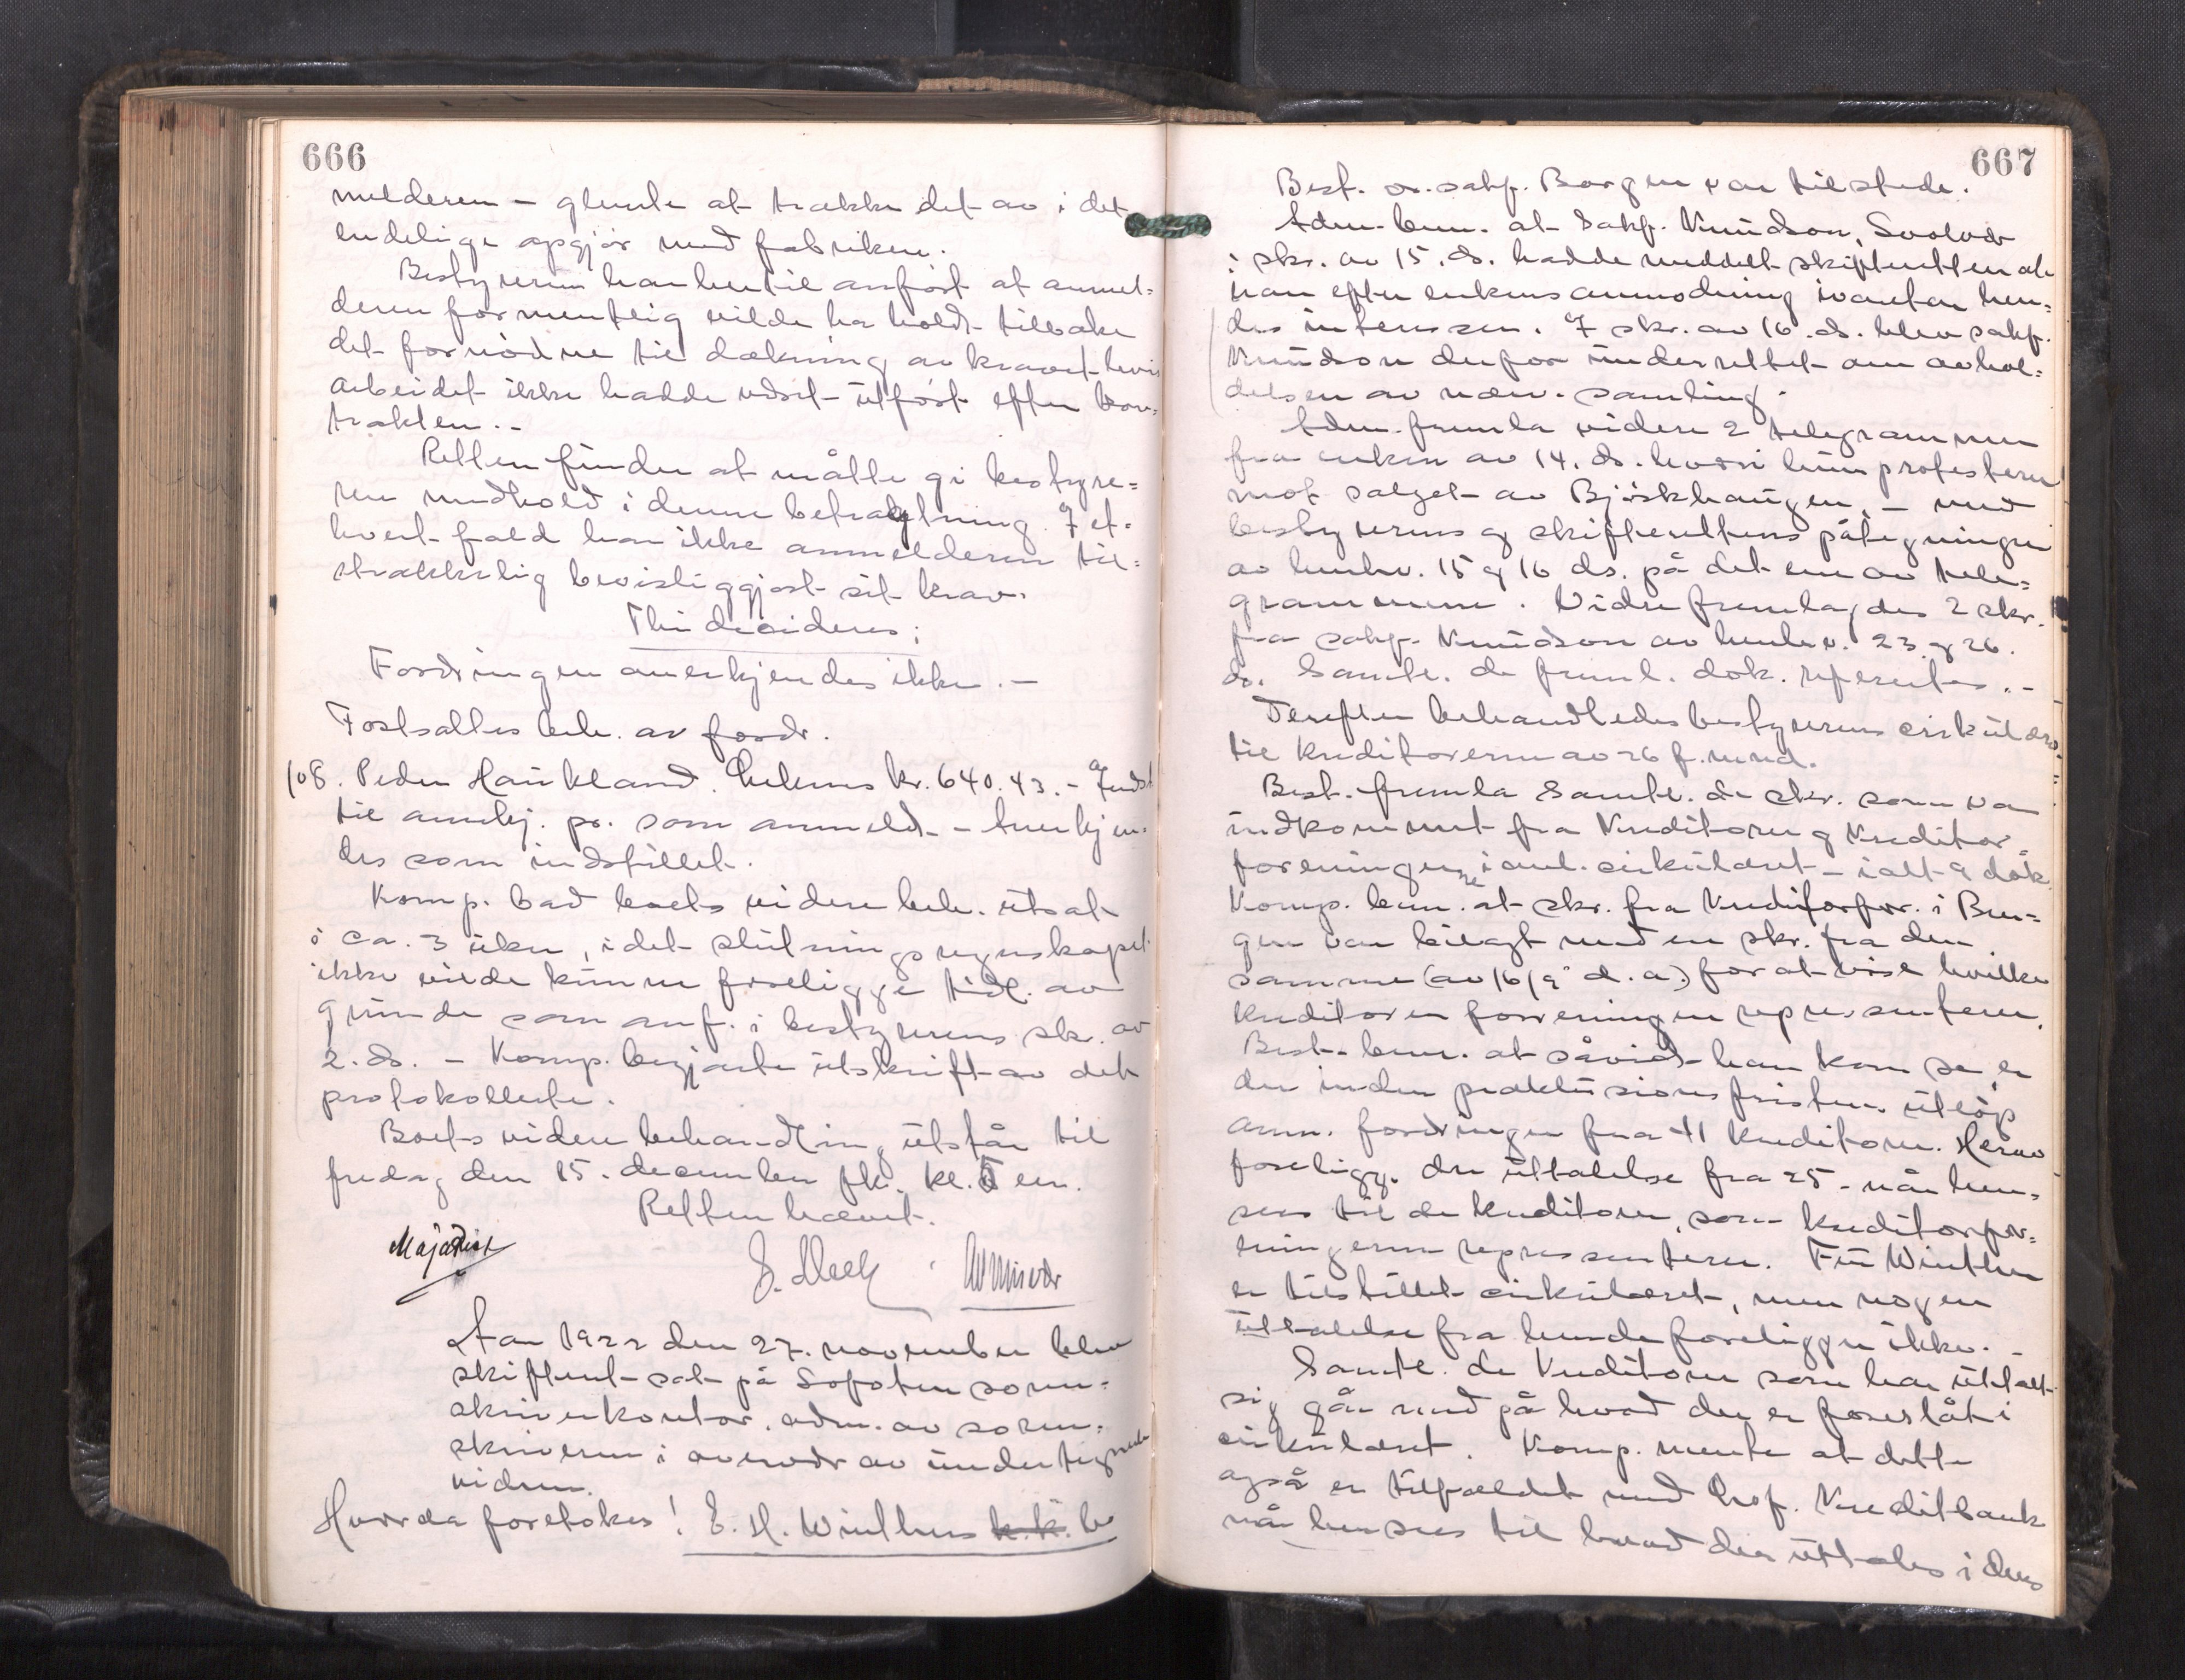 666
melderen - glemte at trække det av i det
endelige opgjör med fabriken.
Bestyreren har hertil anfört at anmel=
deren formentlig vilde ha holdt tilbake
det fornödne til dækning av kravet hvis
arbeidet ikke hadde været utfört efter kon=
trakten. -
Retten finder at måtte gi bestyre=
ren medhold i denne betragtning. I et=
hvert fald har ikke anmelderen til=
strækkelig bevisliggjort sit krav.
Thi decideres:
Fordringen anerkjendes ikke. -
Fortsattes beh. av fordr.
108. Peder Haukland. Helnes kr. 640.43. - Indst
til anerkj. pr. som anmeldt. - Anerkjen=
des som indstillet.
Komp. bad boets videre beh. utsat
i ca. 3 uker, idet slutningsregnskapet
ikke vilde kunne foreligge tidl. av
grunde som anf. i bestyrerens skr. av
2. ds. - Komp. begjærte utskrift av det
protokollerte.
Boets videre behandling utstår til
fredag den 15. december fk. kl. 5 em.
Retten hævet.
Aar 1922 den 27. november blev
skifteret sat på Lofoten soren=
skriverkontor, adm. av soren=
skriveren i overvær av undertegnede
vidner.
Hvorda foretokes! E. H. Winthers k.k. bo
667
Best. or. sakf. Borgen var tilstede.
Adm. bem. at sakf. Knudson, Svolvær
i skr. av 15. ds. hadde meddelt skifteretten at
han efter enkens anmodning ivaretar hen=
des interesser. I skr. av 16. ds. blev sakf.
Knudson derfor underrettet om avhol=
delsen av nærv. samling.
Adm. fremla videre 2 telegrammer
fra enken av 14. ds. hvori hun protesterer
mot salget av Björkhaugen, - med
bestyrerens og skifterettens påtegninger
av henhv. 15 og 16 ds. på det ene av tele=
grammene. Videre fremlagdes 2 skr.
fra sakf. Knudson av henhv. 23. og 26.
ds. Samtl. de freml. dok. refertes. -
Derefter behandledes bestyrerens cirkulære
til kreditorerne av 26 f. mnd.
Best. fremla samtl. de skr. som var
indkommet fra kreditorer og kreditor=
foreningerne i anl. cirkulæret - ialt 9 dok.
Komp. bem. at skr. fra kreditorfor. i Ber=
gen var bilagt med en skr. fra den
samme (av 16/9 d.a.) for at vise hvilke
kreditorer foreningen representerer.
Best. bem. at såvidt han kan se, er
der inden præklusionsfristens utlöp
anm. fordringer fra 41 kreditorer. Herav
foreligg. der uttalelse fra 25 - når hen=
sees til de kreditorer, som kreditorfor=
eningerne representerer. Fru Winther
er tilstillet cirkulæret, men nogen
uttalelse fra hende foreligger ikke. -
Samtl. de kreditorer som har uttalt
sig går med på hvad der er foreslåt i
cirkulæret. Komp. mente at dette
også er tilfældet med Chr. Kreditbank
når hensees til hvad der uttales i dens